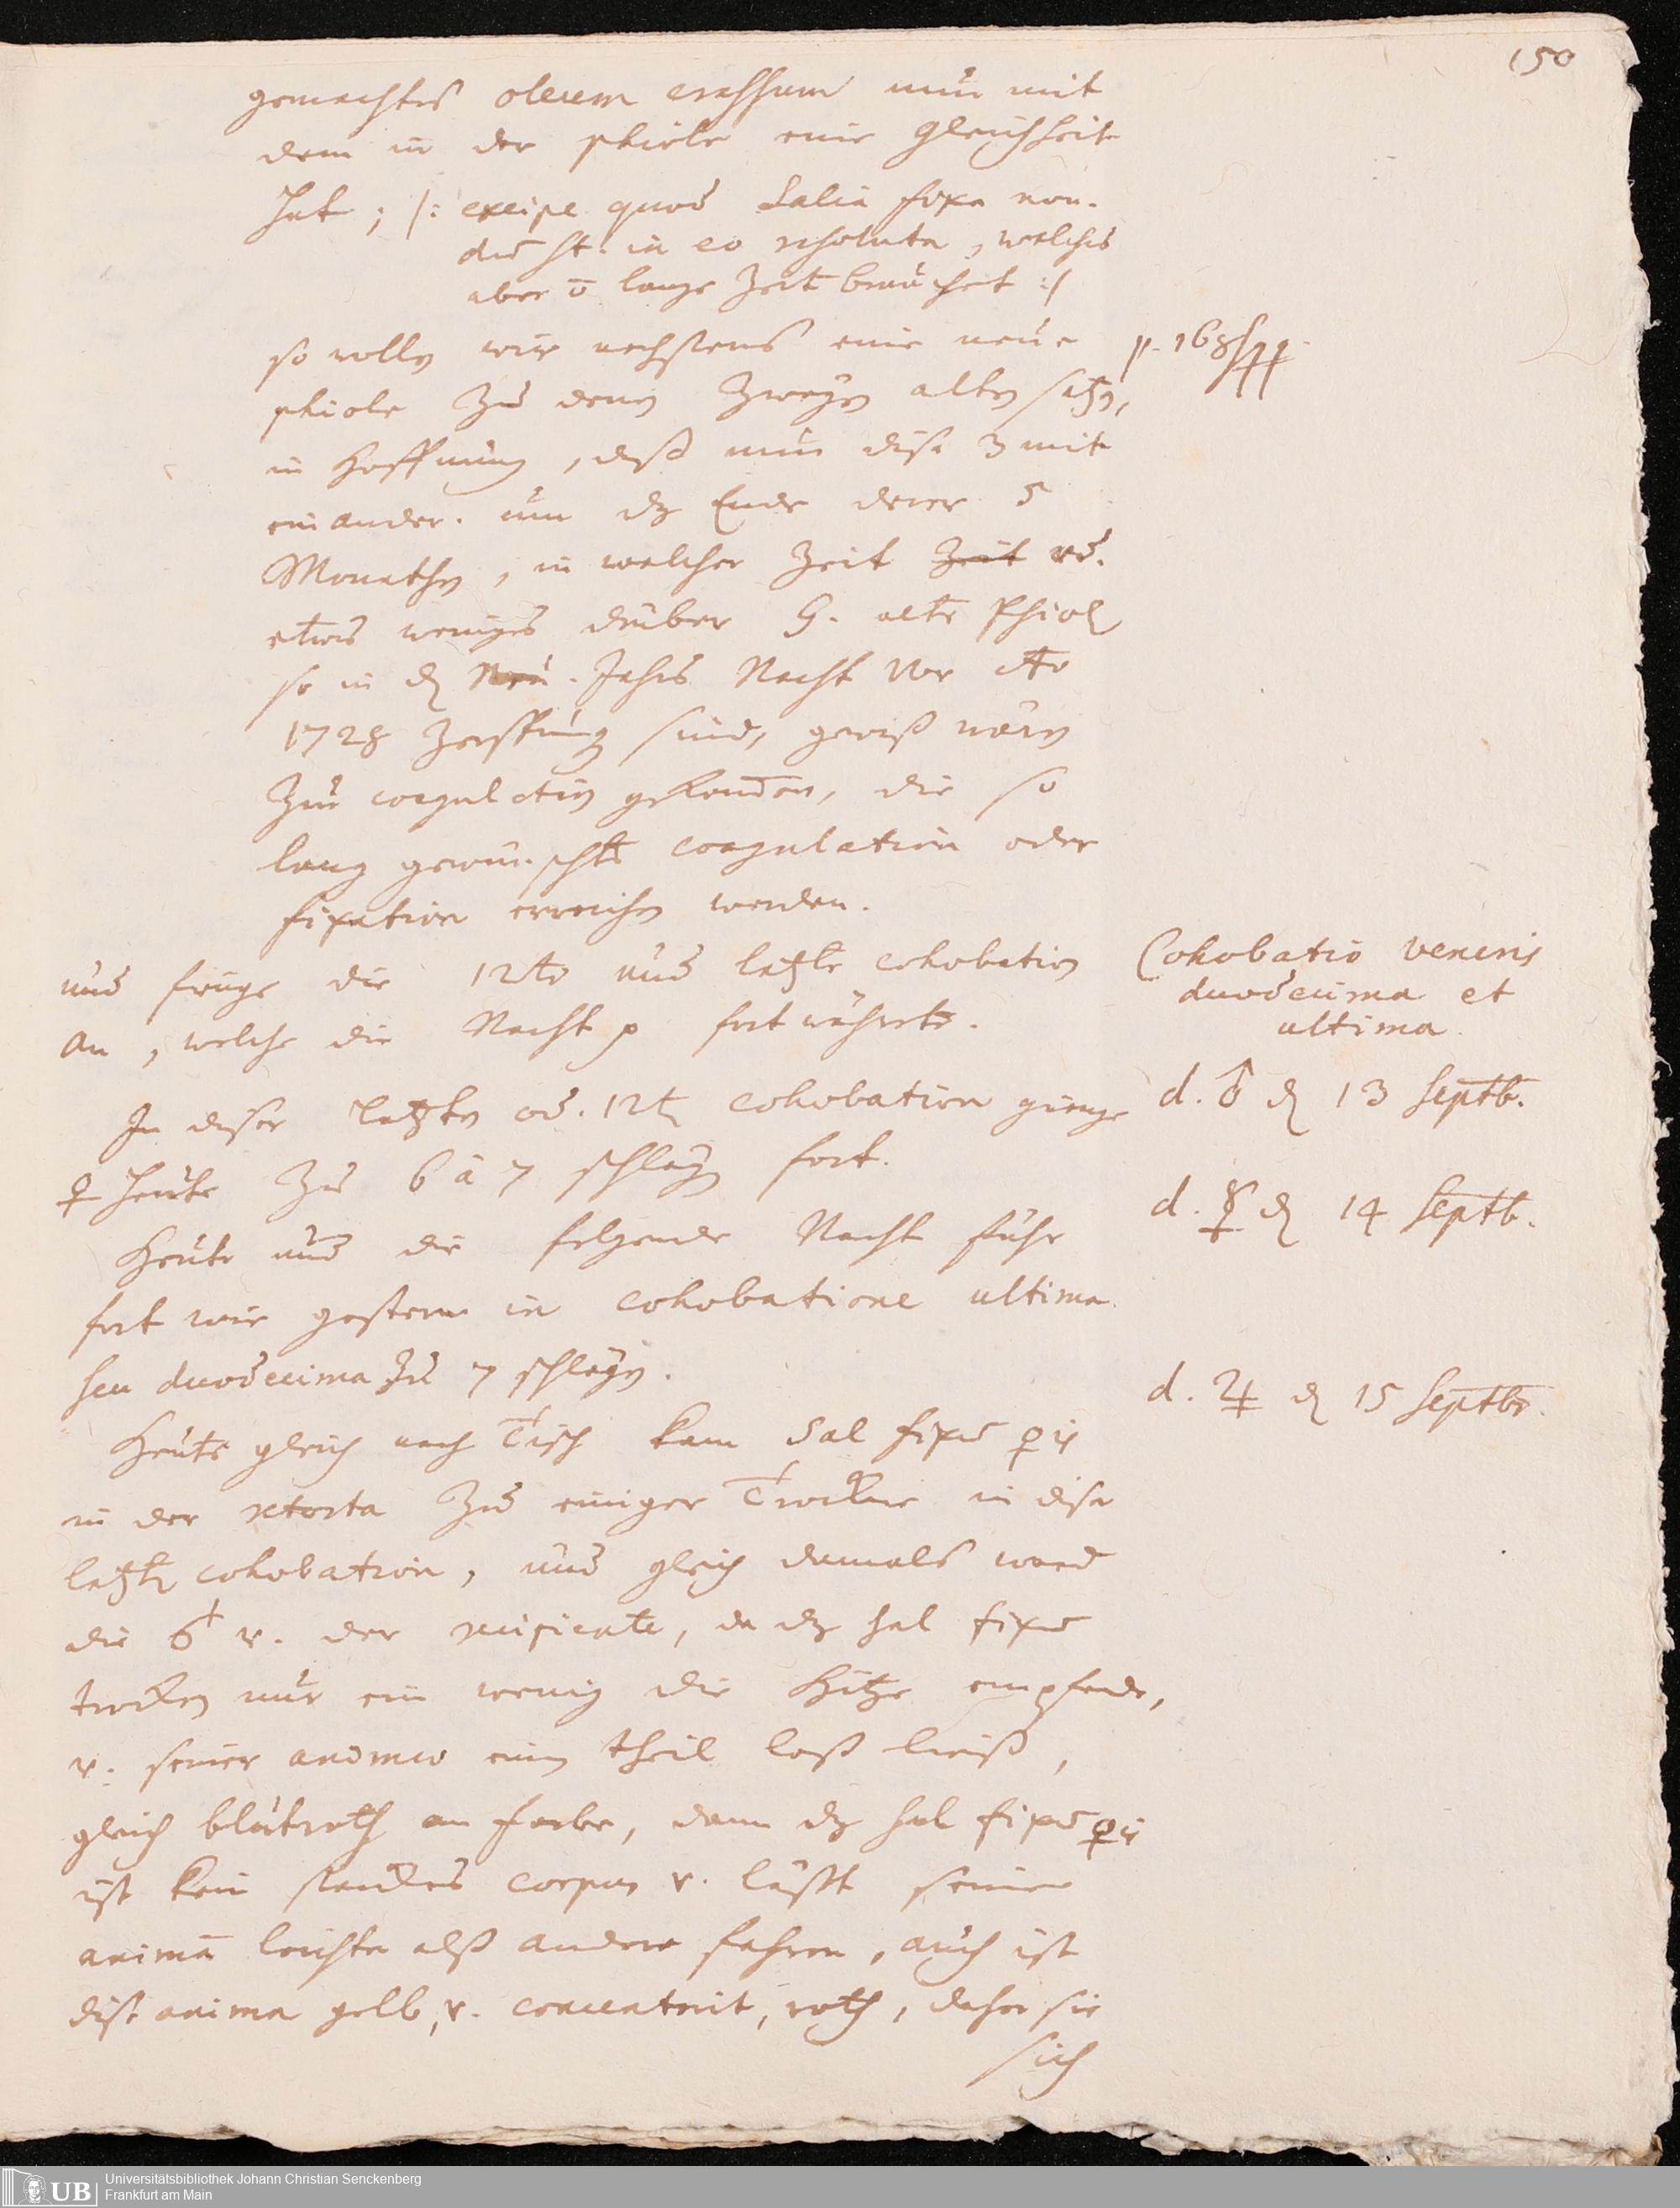 150
gemachtes oleum crassum nun mit
dem in der phiole eine Gleichheit
hat ; /: excipe quod Salia fixa non-
dū st. in eo resoluta , welches
aber ō lange Zeit brauchet :/
so wollen wir nechstens eine neue
p. 168sqq.
phiole Zu denen Zweyen alten setzen,
in Hoffnung , daß nun diese 3 mit
einander. um dz Ende derer 5
Monathen , in welcher Zeit Zeit vd.
etwas weniges drüber alte Phiolen
so in der Neu-Jahrs Nacht
1728 sind, gewiß wären
Zur coagulation gestanden, die so
lang gewünschte coagulation oder
fixation erreichen werden.
und fienge die 12te und letzte cohobation
an , welche die Nacht p fort währete.
Cohobatio veneris
duodecima et
ultima
d. ♂ den 13 Septb.
In dieser letzten od. 12ten cohobation gienge
♀ heute Zu 6 â 7 schlägen fort.
d. ☿ den 14 Septb.
Heute und die folgende Nacht fuhr
fort wie gestern in cohobatione ultima
seu duodecima Zu 7 schlägen.
d. ♃ den 15 Septbr.
Heute gleich nach Tisch kam Sal fixū ♀is
in der retorta Zu einiger Trockne in dieser
letzten cohobation , und gleich damals ward
die v. der recipiente, da dz sal fixū
trocken nur ein wenig die Hitze empfande,
v. seiner einen theil loß ließ ,
gleich blutroth an farbe, dann dz sal fixū ♀is
ist kein starckes corpus v. läßt seine
animā leichter alß andere fahren , auch ist
diese anima gelb, v. concentrirt, roth , daher sie
sich
Universitätsbibliothek Johann Christian Senckenberg
Frankfurt am Main
UB